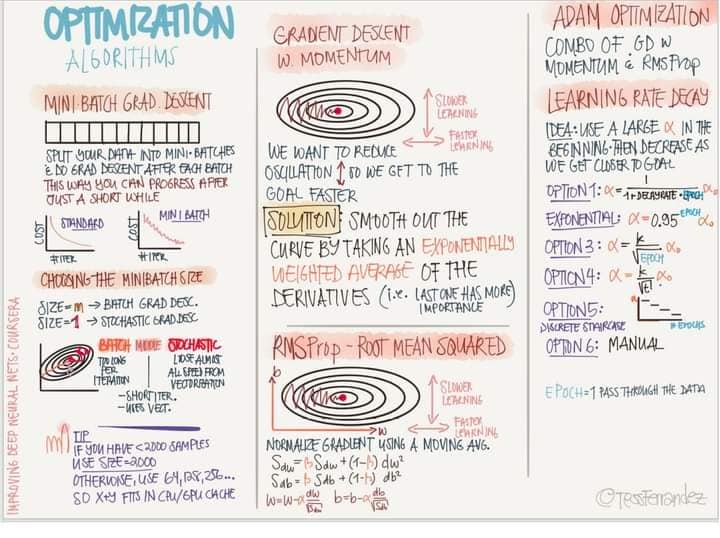 OPTIMIZATION
ALGORITHMS
MINI-BATCH GRAD. DESCENT
SPLIT YOUR DATA INTO MINI-BATCHES
& DO GRAD DESCENT AFTER EACH BATCH
THIS WAY YOU CAN PROGRESS AFTER
JUST A SHORT WHILE
COST
STANDARD
# ITER
COST
MINI BATCH
# ITER
CHOOSING THE MINIBATCH SIZE
SIZE=m → BATCH GRAD DESC.
SIZE=1 → STOCHASTIC GRAD DESC
BATCH MIDDLE STOCHASTIC
TOO LONG
PER
ITERATION
LOSE ALMOST
ALL SPEED FROM
VECTORIZATION
-SHORT ITER.
-USES VECT.
TIP
IF YOU HAVE <2000 SAMPLES
USE SIZE=2000
OTHERWISE, USE 64, 128, 256...
SO X+Y FITS IN CPU/GPU CACHE
IMPROVING DEEP NEURAL NETS · COURSERA
GRADIENT DESCENT
W. MOMENTUM
SLOWER
LEARNING
FASTER
LEARNING
WE WANT TO REDUCE
OSCILLATION ↕ SO WE GET TO THE
GOAL FASTER
SOLUTION: SMOOTH OUT THE
CURVE BY TAKING AN EXPONENTIALLY
WEIGHTED AVERAGE OF THE
DERIVATIVES (i.e. LAST ONE HAS MORE
IMPORTANCE)
RMSProp - ROOT MEAN SQUARED
b
SLOWER
LEARNING
FASTER
LEARNING
W
NORMALIZE GRADIENT USING A MOVING AVG.
Sdw = β Sdw + (1-β) dw²
Sdb = β Sdb + (1-β) db²
w=w-α dw/√Sdw b=b-α db/√Sdb
ADAM OPTIMIZATION
COMBO OF GD W
MOMENTUM & RMSProp
LEARNING RATE DECAY
IDEA: USE A LARGE α IN THE
BEGINNING THEN DECREASE AS
WE GET CLOSER TO GOAL
OPTION 1: α = 1/(1+DECAYRATE·EPOCH) α₀
EXPONENTIAL: α=0.95^EPOCH α₀
OPTION 3: α = k/√EPOCH α₀
OPTION 4: α = k/√t α₀
OPTION 5:
DISCRETE STAIRCASE
α
# EPOCHS
OPTION 6: MANUAL
EPOCH=1 PASS THROUGH THE DATA
© TessFerrandez